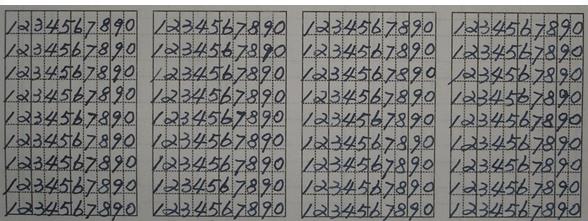 1234567890 1234567890 1234567890 1234567890
1234567890 1234567890 1234567890 1234567890
1234567890 1234567890 1234567890 1234567890
1234567890 1234567890 1234567890 1234567890
1234567890 1234567890 1234567890 1234567890
1234567890 1234567890 1234567890 1234567890
1234567890 1234567890 1234567890 1234567890
1234567890 1234567890 1234567890 1234567890
1234567890 1234567890 1234567890 1234567890